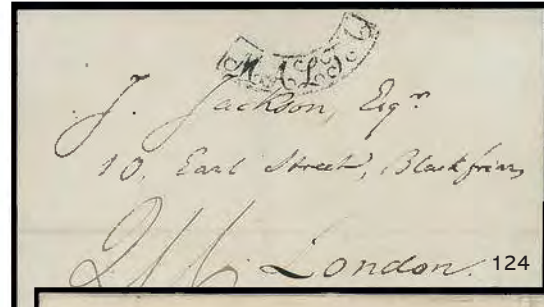 MALTA
J. Jackson, Esqr.
10, Earl Street, Blackfriars
2/6 London. 124